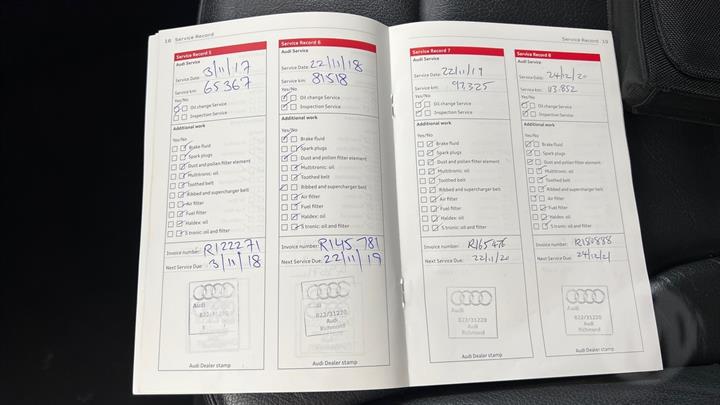 18 Service Record
Service Record 5
Audi Service
Service Date: 3/11/17
Service km: 65367
Yes/No
Oil change Service
Inspection Service
Additional work
Yes/No
Brake fluid
Spark plugs
Dust and pollen filter element
Multitronic: oil
Toothed belt
Ribbed and supercharger belt
Air filter
Fuel filter
Haldex: oil
S tronic: oil and filter
Invoice number: R122271
Next Service Due: 3/11/18
Audi
822/31220
Audi Dealer stamp
Service Record 6
Audi Service
Service Date: 22/11/18
Service km: 81518
Yes/No
Oil change Service
Inspection Service
Additional work
Yes/No
Brake fluid
Spark plugs
Dust and pollen filter element
Multitronic: oil
Toothed belt
Ribbed and supercharger belt
Air filter
Fuel filter
Haldex: oil
S tronic: oil and filter
Invoice number: R145781
Next Service Due: 22/11/19
822/31220
Audi
Richmond
Audi Dealer stamp
Service Record 19
Service Record 7
Audi Service
Service Date: 22/11/19
Service km: 97325
Yes/No
Oil change Service
Inspection Service
Additional work
Yes/No
Brake fluid
Spark plugs
Dust and pollen filter element
Multitronic: oil
Toothed belt
Ribbed and supercharger belt
Air filter
Fuel filter
Haldex: oil
S tronic: oil and filter
Invoice number: R165476
Next Service Due: 22/11/20
822/31220
Audi
Richmond
Audi Dealer stamp
Service Record 8
Audi Service
Service Date: 24/12/20
Service km: 113.852
Yes/No
Oil change Service
Inspection Service
Additional work
Yes/No
Brake fluid
Spark plugs
Dust and pollen filter element
Multitronic: oil
Toothed belt
Ribbed and supercharger belt
Air filter
Fuel filter
Haldex: oil
S tronic: oil and filter
Invoice number: R180888
Next Service Due: 24/12/21
822/31220
Audi
Richmond
Audi Dealer stamp